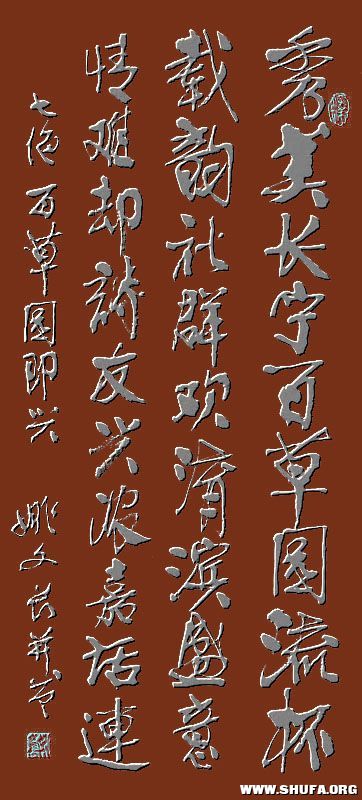 秀美长宁百草园流杯
載韵社群欢渭滨盛意
情难却詩友兴浓嘉话連
七绝 百草园即兴 姚文长并
WWW.SHUFA.ORG